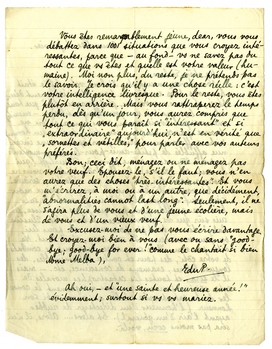 Vous êtes remarquablement jeune, dear, vous vous
débattez dans 1001 situations que vous croyez inté-
ressantes, parce que – au fond – vs ne savez pas du
tout ce que vs êtes et quelle est votre valeur (hu-
maine). Moi non plus, du reste, je ne prétends pas
le savoir. Je crois qu'il y a une chose réelle : c'est
votre intelligence livresque. Pour le reste, vous êtes
plutôt en arrière. Mais vous rattraperez le temps
perdu, dès qu'un jour, vous aurez compris que
tout ce qui vous paraît si "intéressant" et si
"extraordinaire" aujourd'hui, n'est en vérité que
sornettes et vétilles, pour parler avec vos auteurs
préférés.
Bon; ceci dit, ménagez ou ne ménagez pas
votre veuf. Epousez-le, s'il le faut; vous n'en
aurez que des choses "très intéressantes". Et vous
m'écrirez, à moi ou à un autre, que décidément,
abnormalities cannot last long. Seulement, il ne
s'agira plus de vous et d'une jeune écolière, mais
de vous et d'un vieux veuf.
Excusez-moi de ne pas vous écrire davantage.
Et croyez-moi bien à vous (avec ou sans "good-
bye, good-bye for ever" comme le chantait si bien
Mme Melba),
EduP.
Ah oui, – et "une sainte et heureuse année!"
évidemment; surtout si vs vs mariez.